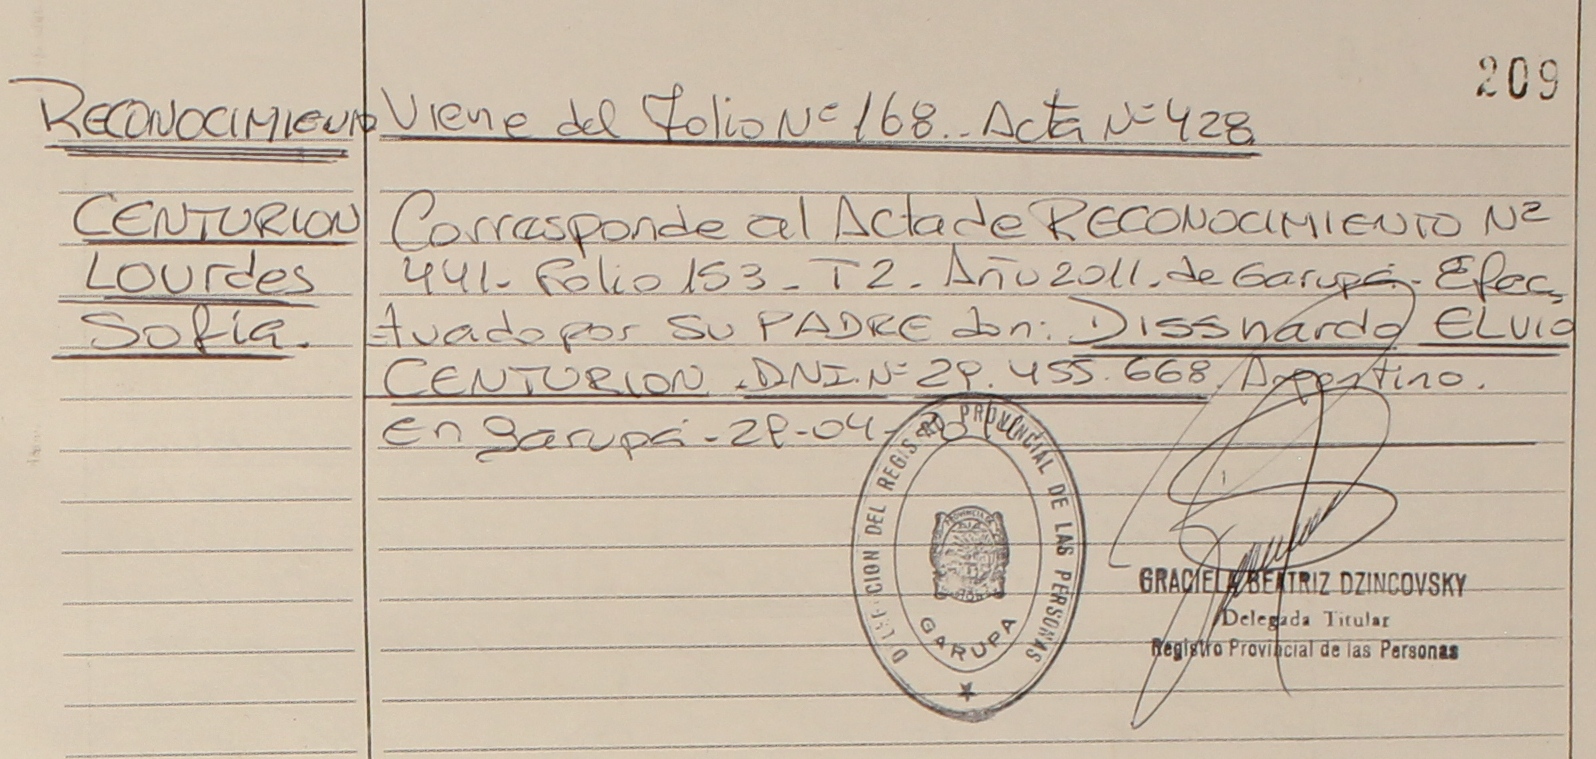 209
RECONOCIMIENTO Viene del Folio Nº 168.. Acta Nº 428
CENTURION Corresponde al Acta de RECONOCIMIENTO Nº
Lourdes 441- Folio 153 - T2. Año 2011. de Garupá - Efec,
Sofía. tuado por su PADRE don: Dissnardo ELVIO
CENTURION .DNI. Nº 29.455.668. Argentino.
en Garupá - 29-04-
DIRECCION DEL REGISTRO PROVINCIAL DE LAS PERSONAS
PROVINCIA DE
GARUPA
GRACIELA BEATRIZ DZINCOVSKY
Delegada Titular
Registro Provincial de las Personas